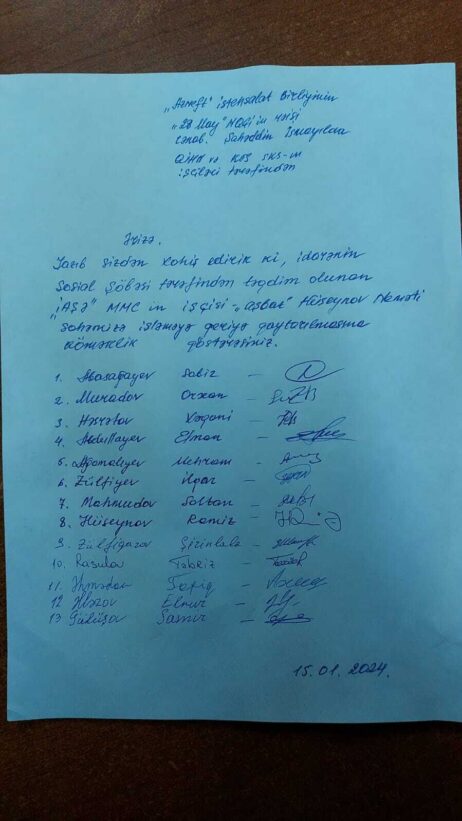 "Azneft" istehsalat Birliyinin
"28 May" NQÇİ in rəisi
cənab. Səhəddin İsmayılova
QİHN və KBŞ SKS-in
işçiləri tərəfindən
Ərizə.
Yazıb sizdən xahiş edirik ki, idarənin
Sosial Şöbəsi tərəfindən təqdim olunan
"İAŞƏ" MMC in işçisi "aşbaz" Hüseynov Neməti
sahəmizə işləməyə geriyə qaytarılmasına
köməklik göstərəsiniz.
1. Abasağayev Sabiz -
2. Muradov Orxan -
3. Həsrətov Vaqani -
4. Abdullayev Elman -
5. Ağamalıyev Mehram -
6. Zülfiyev İlqar -
7. Mahmudov Soltan -
8. Hüseynov Ramiz -
9. Zülfiqarov Şirinbala -
10. Rəsulov Təbriz -
11. Əhmədov Tofiq -
12 Elnur -
13 Samir -
15.01.2024.